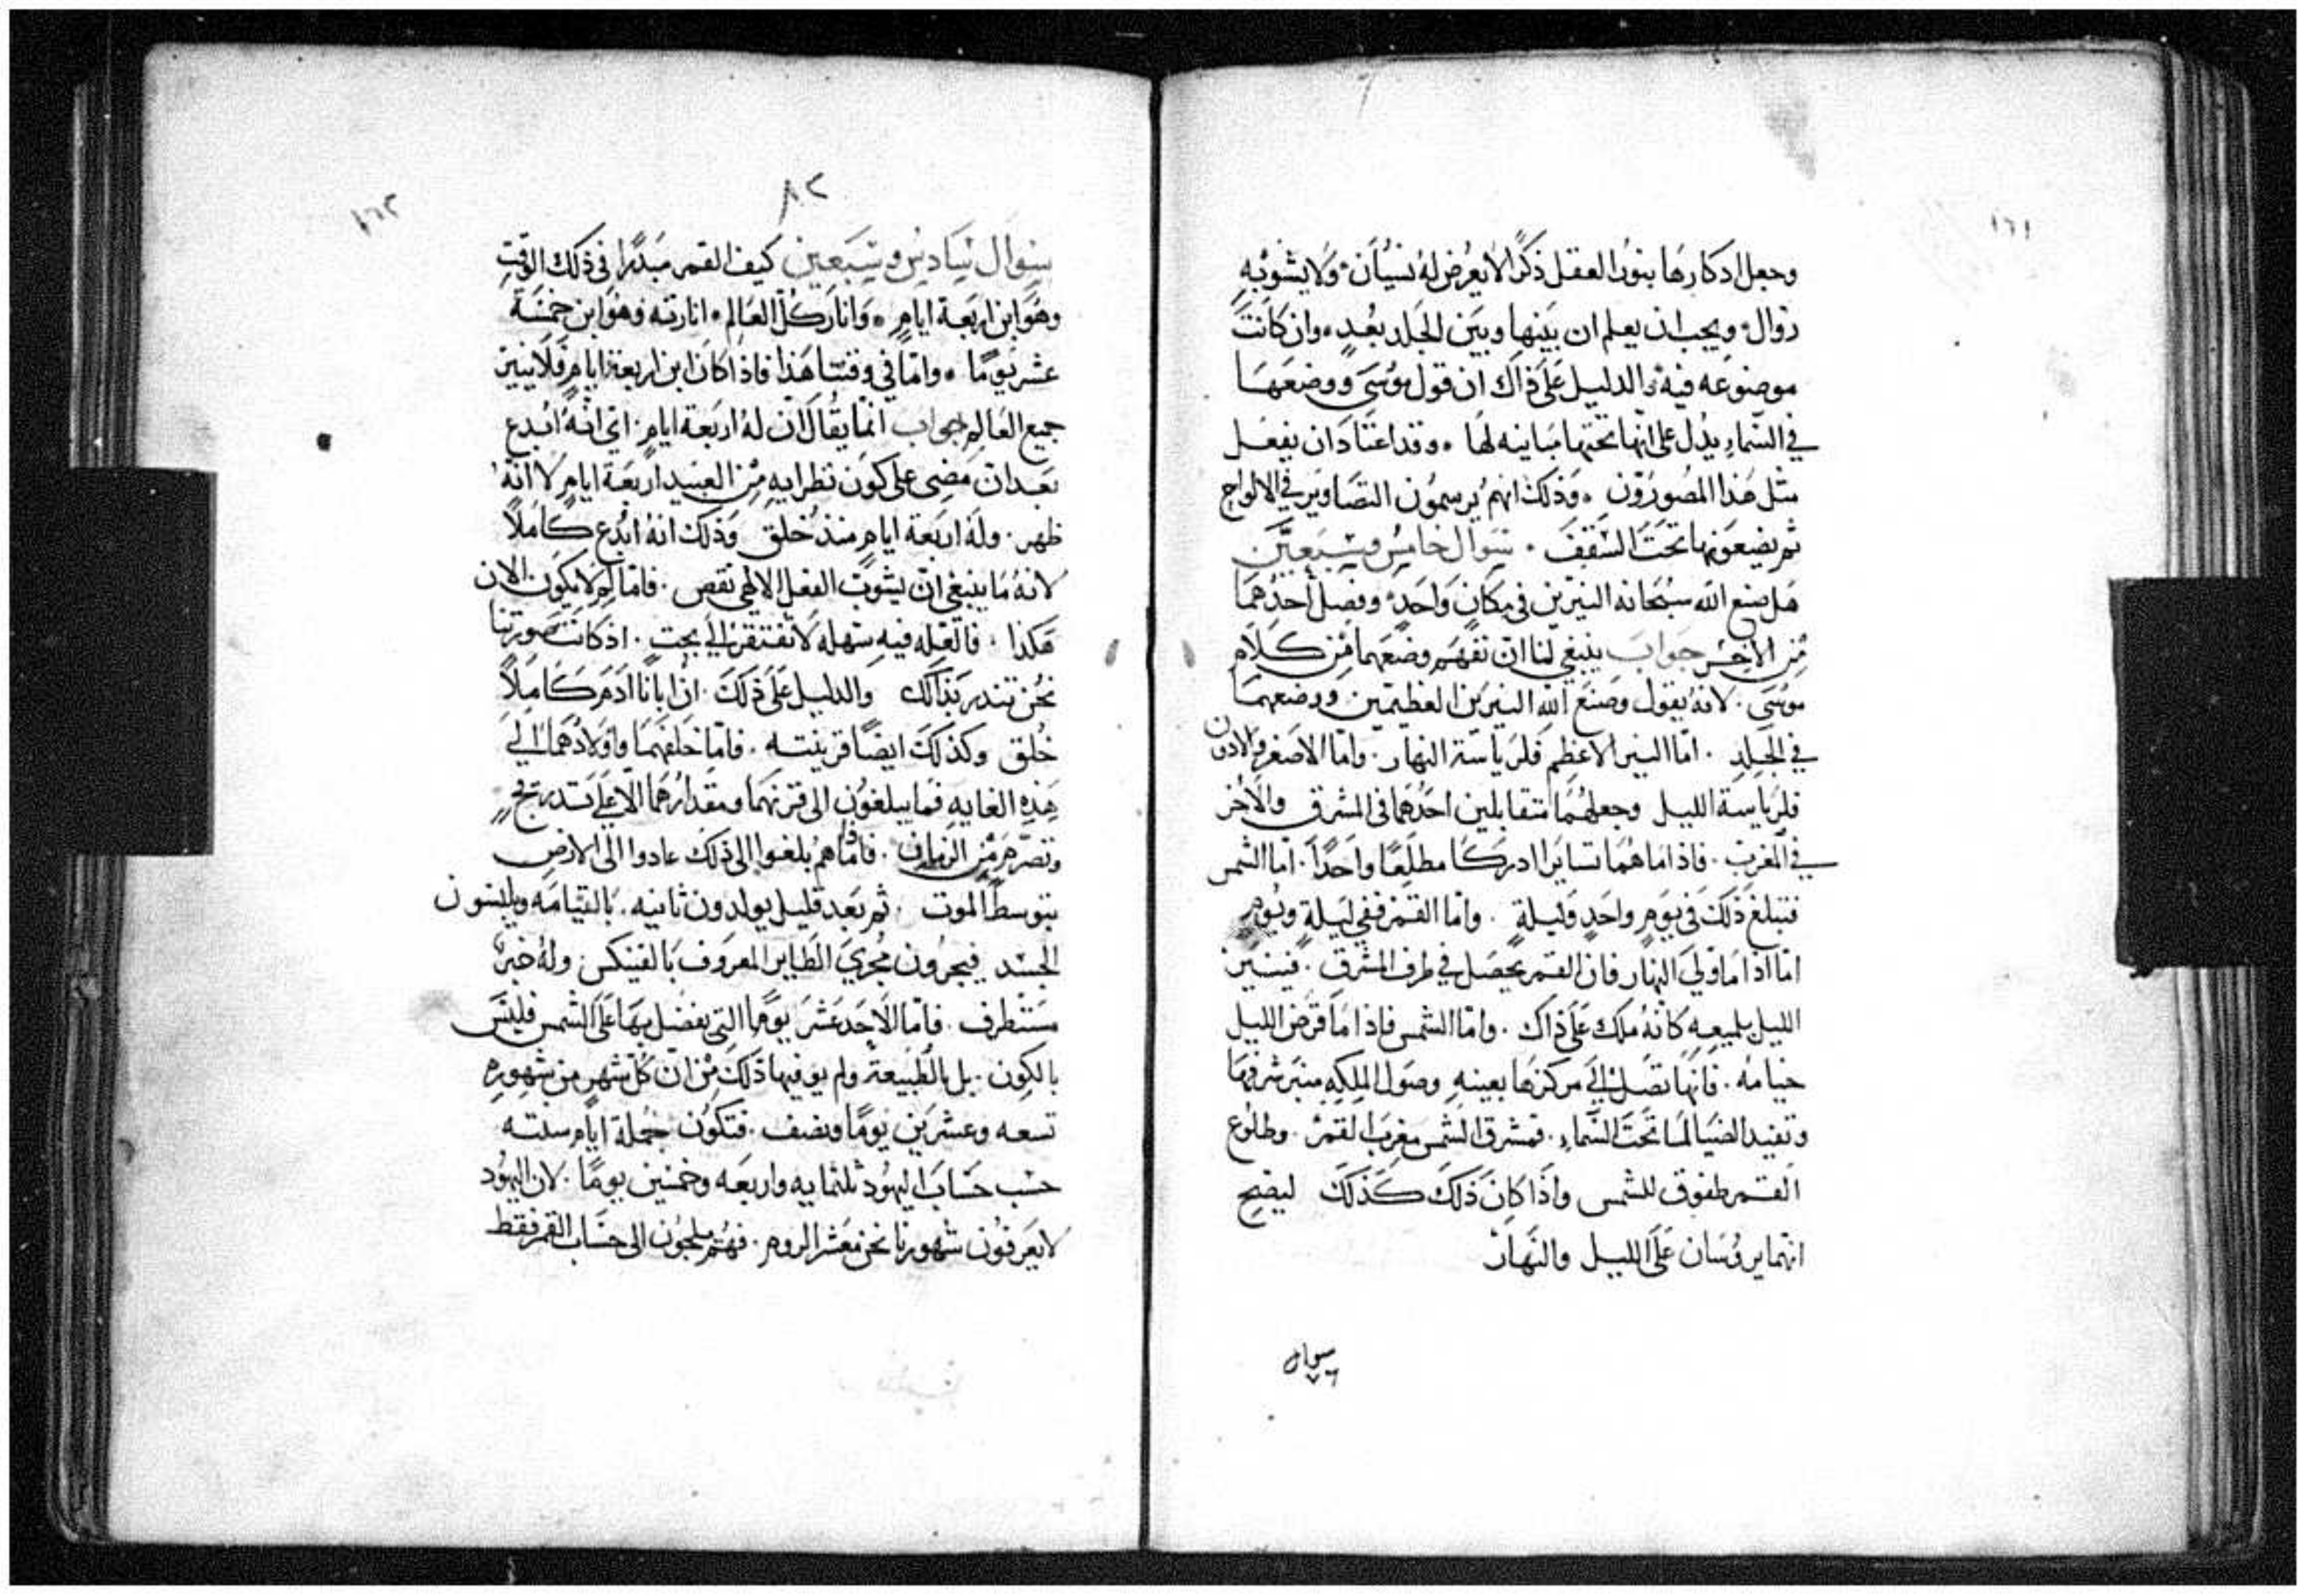 ١٦١
وجعل ادكارها بنور العقل ذكرًا لا يعرض له نسيان ولا يشوبه
زوال ويجب ان يعلم ان بينها وبين الجلد بعدٍ وان كانت
موضوعه فيه والدليل على ذاك ان قول موسى ووضعها
في السماء يدل على انها تحتها مباينه لها وقد اعتاد ان يفعل
مثل هذا المصورون وذلك انهم يرسمون التصاوير في الالواح
ثم يضعونها تحت السقف سوال خامس وسبعين
هل صنع الله سبحانه النيرين في مكانٍ واحدٍ وفصل احدهما
من الاخر جواب ينبغي لنا ان نفهم وضعهما من كلام
موسى لانه يقول وصنع الله النيرين العظيمين ووضعهما
في الجلد اما النير الاعظم فلرياسة النهار واما الاصغر والادون
فلرياسة الليل وجعلهما متقابلين احدهما في المشرق والاخر
في المغرب فاذا ما هما تسايرا ادركا مطلعًا واحدًا اما الشمس
فتبلغ ذلك في يومٍ واحدٍ وليلةٍ واما القمر ففي ليلةٍ ويوم
اما اذا ما ولي النهار فان القمر يحصل في طرف المشرق فينير
الليل بلميعه كانه ملك على ذاك واما الشمس فاذا ما قرض الليل
خيامه فانها تصل الى مركزها بعينه وصول الملكه منبر شرفها
وتفيد الضيا لما تحت السماء فمشرق الشمس مغرب القمر وطلوع
القمر طفوق للشمس واذا كان ذلك كذلك ليصح
انهما يروسان على الليل والنهار
سوال
٧٦
٨٢
١٦٢
سوال سادس وسبعين كيف القمر مبدرًا في ذلك الوقت
وهو ابن اربعة ايام وانار كل العالم انارته وهو ابن خمسة
عشر يومًا واما في وقتنا هذا فاذا كان ابن اربعة ايام فلا ينير
جميع العالم جواب انما يقال ان له اربعة ايام اي انه ابدع
بعد ان مضى على كون نظرايه من العبيد اربعة ايام لا انه
ظهر وله اربعة ايام منذ خلق وذلك انه ابدع كاملاً
لانه ما ينبغي ان يشوب الفعل الالهي نقص فاما لم لا يكون الان
هكذا فالعله فيه سهله لا تفتقر الى بحث اذ كانت صورتنا
نحن تتدرب بذاك والدليل على ذلك ان ابانا ادم كاملاً
خلق وكذلك ايضًا قرينته فاما خلفهما واولادهما الى
هذه الغايه فما يبلغون الى قرنهما ومقدارهما الا على تدريج
وتصرم من الزمان فاما هم بلغوا الى ذلك عادوا الى الارض
بتوسط الموت ثم بعد قليل يولدون ثانيه بالقيامه ويلبسون
الجسد فيجرون مجرى الطاير المعروف بالفينكس وله خبر
مستطرف فاما الاحد عشر يومًا التي يفضل بها على الشمس فليس
بالكون بل بالطبيعة ولم يوفيها ذلك من ان كل شهر من شهوره
تسعه وعشرين يومًا ونصف فتكون جملة ايام سنته
حسب حساب اليهود ثلثمايه واربعه وخمسين يومًا لان اليهود
لا يعرفون شهورنا نحن معشر الروم فهم ملجون الى حساب القمر فقط